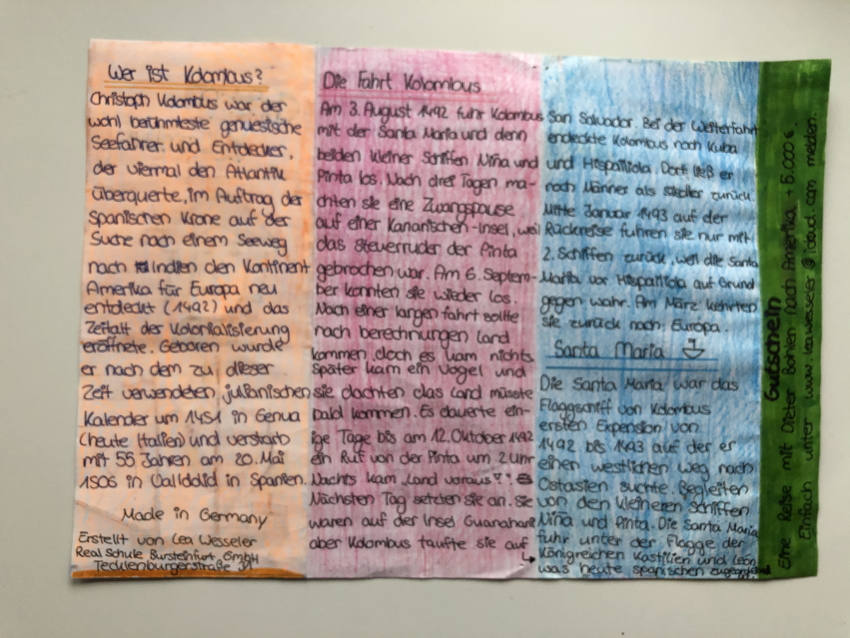 Wer ist Kolombus?
Christoph Kolombus war der
wohl berühmteste genuesische
Seefahrer und Entdecker,
der viermal den Atlantik
überquerte, im Auftrag der
spanischen Krone auf der
Suche nach einem Seeweg
nach Indien den Kontinent
Amerika für Europa neu
entdeckt (1492) und das
Zeitalt der Kolonialisierung
eröffnete. Geboren wurde
er nach dem zu dieser
Zeit verwendeten julianischen
Kalender um 1451 in Genua
(heute Italien) und verstarb
mit 55 Jahren am 20. Mai
1506 in in Spanien.
Made in Germany
Erstellt von Lea Wesseler
Real Schule Burgsteinfurt, GmbH
Tecklenburgerstraße
Die Fahrt Kolombus
Am 3. August 1492 fuhr Kolombus
mit der Santa Maria und denn
beiden kleiner Schiffen Niña und
Pinta los. Nach drei Tagen ma-
chten sie eine Zwangspause
auf einer Kanarischen-Insel, weil
das Steuerruder der Pinta
gebrochen war. Am 6. Septem-
ber konnten sie wieder los.
Nach einer langen fahrt sollte
nach berechnungen Land
kommen, doch es kam nichts
später kam ein Vogel und
sie dachten das Land müsste
bald kommen. Es dauerte ein-
ige Tage bis am 12. Oktober 1492
ein Ruf von der Pinta um 2 Uhr
Nachts kam „Land voraus"!
Nächsten Tag setzten sie an. sie
waren auf der Insel Guanahani
aber Kolombus taufte sie auf
San Salvador. Bei der Weiterfahrt
endeckte Kolombus noch Kuba
und Hispañiola. Dort ließ er
noch Männer als Siedler zurück.
Mitte Januar 1493 auf der
Rückreise fuhren sie nur mit
2. Schiffen zurück, weil die Santa
Maria vor Hispañiola auf Grund
gegen wahr. Am März kehrten
sie zurück nach Europa.
Santa Maria
Die Santa Maria war das
Flaggschiff von Kolombus
ersten Expension von
1492 bis 1493 auf der er
einen westlichen Weg nach
Ostasien suchte. Begleiten
von den kleineren Schiffen
Niña und Pinta. Die Santa Maria
fuhr unter der Flagge der
Königreichen Kastilien und León
was heute spanischen
Gutschein
Eine Reise mit Dieter Bohlen nach Amerika + 5.000 €.
Einfach unter www.leawesseler@icloud.com melden.